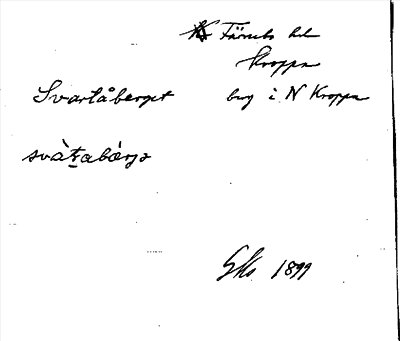 Färnebo hd
Kroppa
Svartåberget berg i N Kroppa
svàʈabærjə
Gko 1899